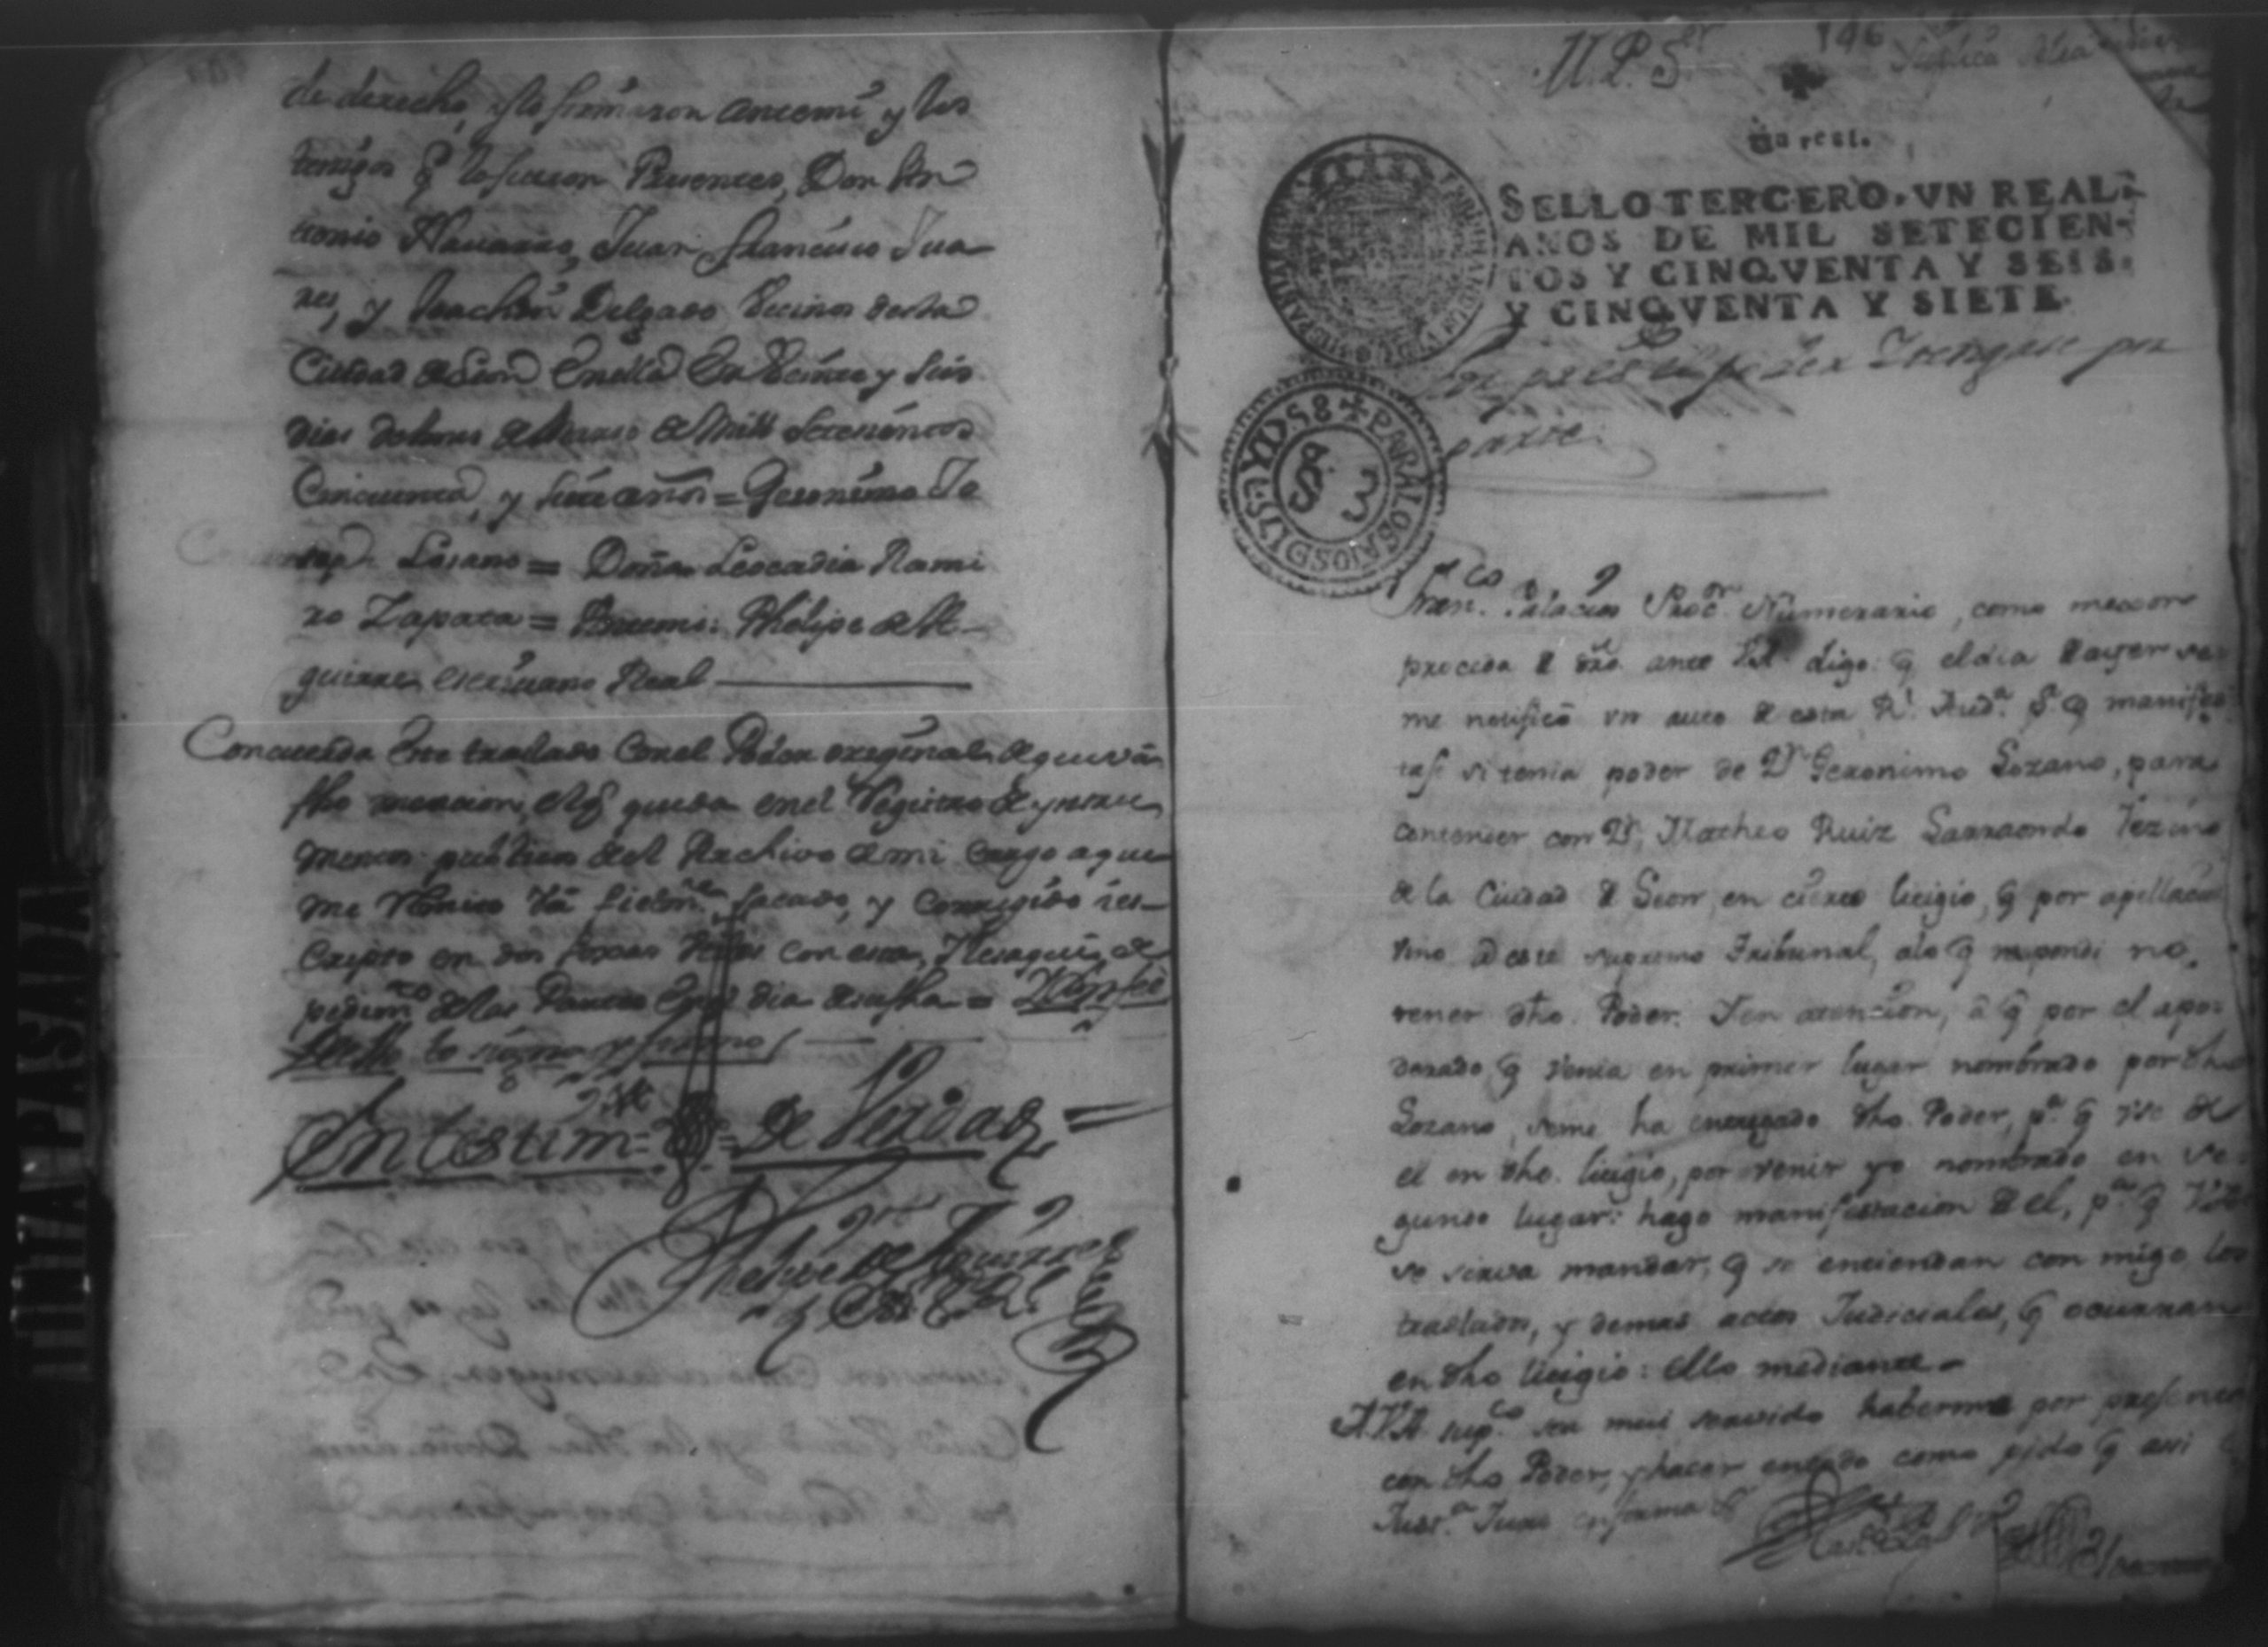 de derecho, y lo firmaron antemi y los
testigos q̃ lo fueron Presentes, Don An
tonio Nauarro, Juan francisco Jua
res, y Joachin Delgado Vecinos desta
Ciudad de Leon En ella En Veinte y seis
dias del mes de Marzo de Mill Setesientos
Cinquenta, y siete años = Geronimo Jo
seph Losano = Doña Leocadia Rami
ro Zapata = Antemi: Phelipe de A-
guirre escriuano Real
Concuerda Este traslado Con el Poder original de que vá
fho mencion, el q̃ queda en el Registro de ynstru
mentos publicos del Archivo de mi Cargo a que
me remito vá ciertº, sacado, y Corregido ies-
cripto en dos foxas con esta, de
pedimᵗᵒ de las Partes En el dia de su fha =
lo signo y firmo
En testim.º de Verdad =
Phelipe de Aguirre
M. P. S.ᵒʳ
196
Vn real.
SELLO TERCERO, VN REAL,
AÑOS DE MIL SETECIEN-
TOS Y CINQVENTA Y SEIS,
Y CINQVENTA Y SIETE.
por
parte.
PARA LOS AÑOS D 1758
Fran.ᶜᵒ Palacios Proc.ᵒʳ Numerario, como mexor
proceda de dro. ante V.A. digo: q̃ el dia de ayer se
me notificó vn auto de esta R.ˡ Aud.ᵃ p.ᵃ q̃ manifes
tase si tenia poder de D.ⁿ Geronimo Lozano, para
contender con D.ⁿ Matheo Ruiz Vezino
de la Ciudad de Leon, en cierto litigio, q̃ por apellacion
vino a este supremo Tribunal, alo q̃ respondi no
tener dho. Poder. Y en atencion, á q̃ por el apo-
derado q̃ venia en primer lugar nombrado por dho
Lozano, seme ha entregado dho. Poder, p.ᵃ q̃ vse de
el en dho. litigio, por venir yo nombrado en se-
gundo lugar: hago manifestacion de el, p.ᵃ q̃ V.A.
se sirva mandar, q̃ se entiendan con migo los
traslados, y demas actos Judiciales, q̃ ocurran
en dho litigio: ello mediante =
A V.A. sup.ᶜᵒ sea mui servido haberme por presentado
con dho Poder, y hacer en todo como pido q̃ asi
Just.ᵃ Juro en forma